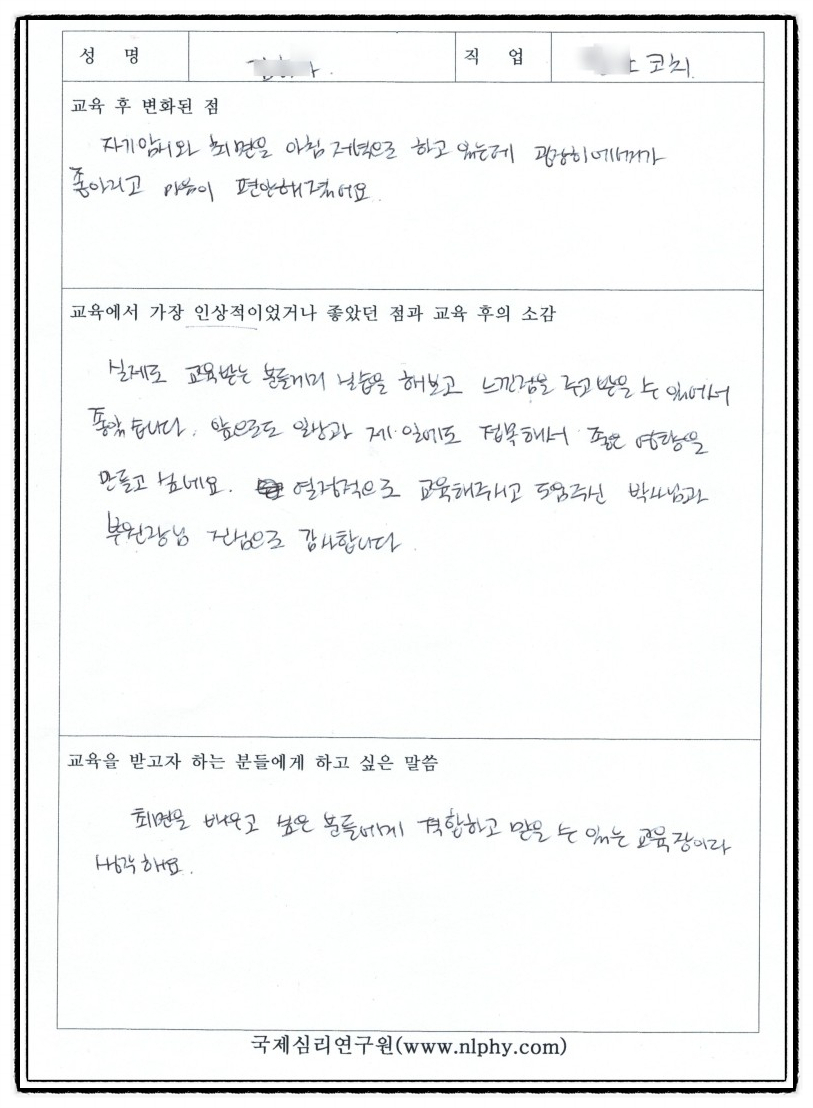 성 명
직 업 코치
교육 후 변화된 점
자기암시와 최면을 아침 저녁으로 하고 있는데 굉장히 에너지가
좋아지고 마음이 편안해졌어요.
교육에서 가장 인상적이었거나 좋았던 점과 교육 후의 소감
실제로 교육받는 분들끼리 실습을 해보고 느낀점을 주고 받을 수 있어서
좋았습니다. 앞으로도 일상과 제 일에도 접목해서 좋은 영향을
만들고 싶네요. 열정적으로 교육해주시고 도움주신 박사님과
부원장님 진심으로 감사합니다.
교육을 받고자 하는 분들에게 하고 싶은 말씀
최면을 배우고 싶은 분들에게 적합하고 믿을 수 있는 교육장이라
생각해요.
국제심리연구원(www.nlphy.com)